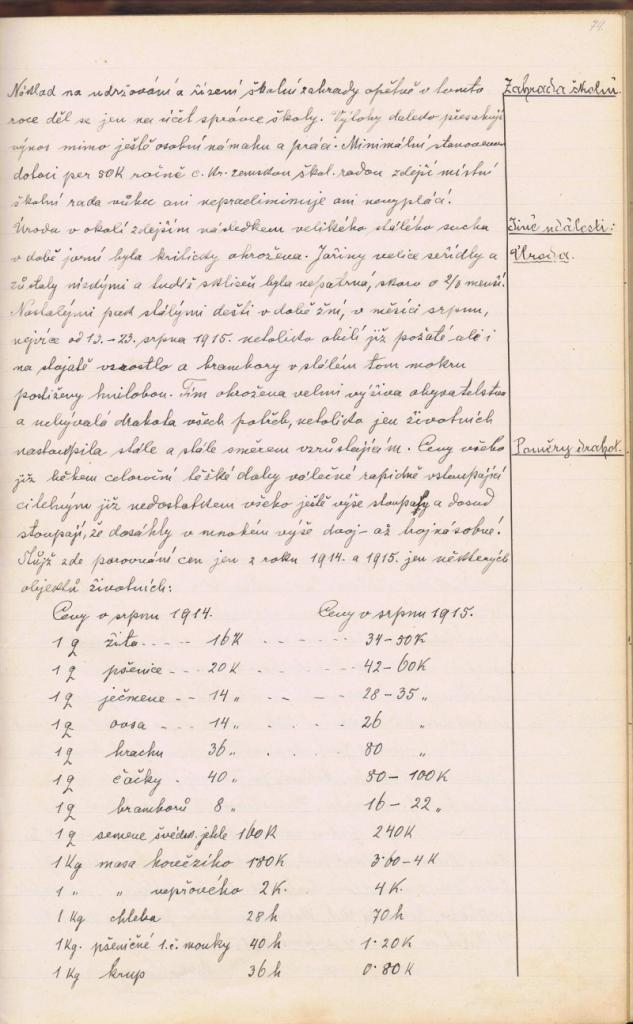 74.
Náklad na udržování a řízení školní zahrady opětně v tomto
Zahrada školní.
roce děl se jen na účet správce školy. Výlohy daleko přesahují
výnos mimo ještě osobní námahu a práci. Minimální stanovenou
dotaci per 50K ročně c. kr. zemskou škol. radou zdejší místní
školní rada vůbec ani nepraeliminuje ani nevyplácí.
Úroda v okolí zdejším následkem velikého stálého sucha
Jiné události:
v době jarní byla kriticky ohrožena. Jařiny velice seřídly a
Úroda.
zůstaly nízkými a tudíž sklizeň byla nepatrná, skoro o 2/3 menší.
Nastalými pak stálými dešti v době žní, v měsíci srpnu,
nejvíce od 13.–23. srpna 1915. netoliko obilí již požaté ale i
na stojatě vzrostlo a brambory v stálém tom mokru
postiženy hnilobou. Tím ohrožena velmi výživa obyvatelstva
a nebývalá drahota všech potřeb, netoliko jen životních
nastoupila stále a stále směrem vzrůstajícím. Ceny všeho
Poměry drahot.
již během celoroční těžké doby válečné rapidně vstoupající
citelným již nedostatkem všeho ještě výše stouply a dosud
stoupají, že dosáhly v mnohém výše dvoj- až trojnásobné!
Stůjž zde porovnání cen jen z roku 1914. a 1915. jen některých
objektů životních:
Ceny v srpnu 1914. Ceny v srpnu 1915.
1 q žita 16K 34–50K
1 q pšenice 20K 42–60K
1 q ječmene 14 „ 28–35 „
1 q ovsa 14 „ 26 „
1 q hrachu 36 „ 80 „
1 q čočky 40 „ 80–100K
1 q bramborů 8 „ 16–22 „
1 q semene švéds. jetele 160K 240K
1 Kg masa hovězího 1·80K 3·60–4K
1 „ „ vepřového 2K. 4K.
1 Kg chleba 28h 70h
1 Kg. pšeničné 1.č. mouky 40h 1·20K
1 Kg krup 36h 0·80K